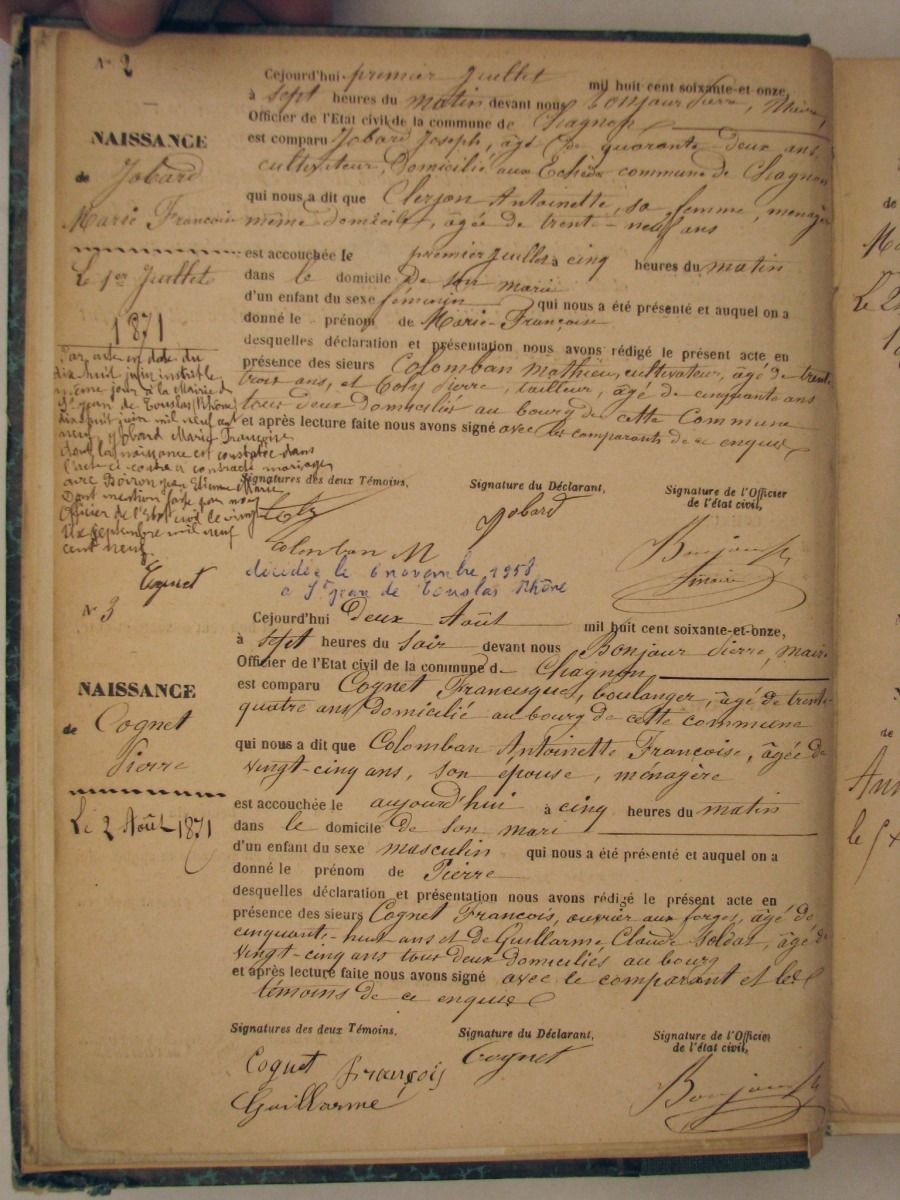 N° 2
NAISSANCE
de Jobard
Marie Françoise
Le 1er Juillet
1871
Par acte en date du
dix huit juin inscrit le
même jour à la Mairie de
St Jean de Touslas (Rhône)
dix huit juin mil neuf cent
neuf, Jobard Marie Françoise
dont la naissance est constatée dans
l'acte ci-contre a contracté mariage
avec Boiron Jean Etienne Marie
Dont mention faite par nous
Officier de l'état civil ce vingt
dix septembre mil neuf
cent neuf.
Cognet
Cejourd'hui premier Juillet mil huit cent soixante-et-onze,
à sept heures du matin devant nous Bonjour Pierre, Maire,
Officier de l'Etat civil de la commune de Chagnon
est comparu Jobard Joseph, âgé de quarante-deux ans,
cultivateur, domicilié aux Echeda commune de Chagnon
qui nous a dit que Clerjon Antoinette, sa femme, ménagère
même domicile, âgée de trente-neuf ans
est accouchée le premier Juillet à cinq heures du matin
dans le domicile de son marie
d'un enfant du sexe féminin qui nous a été présenté et auquel on a
donné le prénom de Marie-Françoise
desquelles déclaration et présentation nous avons rédigé le présent acte en
présence des sieurs Colomban Mathieu, cultivateur, âgé de trente
trois ans, et Coty Pierre, tailleur, âgé de cinquante ans
tous deux domiciliés au bourg de cette Commune
et après lecture faite nous avons signé avec les comparants de ce enquis
Signatures des deux Témoins, Signature du Déclarant, Signature de l'Officier
de l'état civil,
Coty Jobard Bonjour
Colomban M maire
décédée le 6 novembre 1958
à St Jean de Touslas Rhône
N° 3
NAISSANCE
de Cognet
Pierre
Le 2 Août 1871
Cejourd'hui deux Août mil huit cent soixante-et-onze,
à sept heures du soir devant nous Bonjour Pierre, maire
Officier de l'Etat civil de la commune de Chagnon
est comparu Cognet Francisque, boulanger, âgé de trente-
quatre ans domicilié au bourg de cette commune
qui nous a dit que Colomban Antoinette Françoise, âgée de
vingt-cinq ans, son épouse, ménagère
est accouchée le aujourd'hui à cinq heures du matin
dans le domicile de son mari
d'un enfant du sexe masculin qui nous a été présenté et auquel on a
donné le prénom de Pierre
desquelles déclaration et présentation nous avons rédigé le présent acte en
présence des sieurs Cognet François, ouvrier aux forges, âgé de
cinquante-huit ans et de Guillarme Claude soldat, âgé de
vingt-cinq ans tous deux domiciliés au bourg
et après lecture faite nous avons signé avec le comparant et les
témoins de ce enquis
Signatures des deux Témoins, Signature du Déclarant, Signature de l'Officier
de l'état civil,
Cognet françois Cognet Bonjour
Guillarme